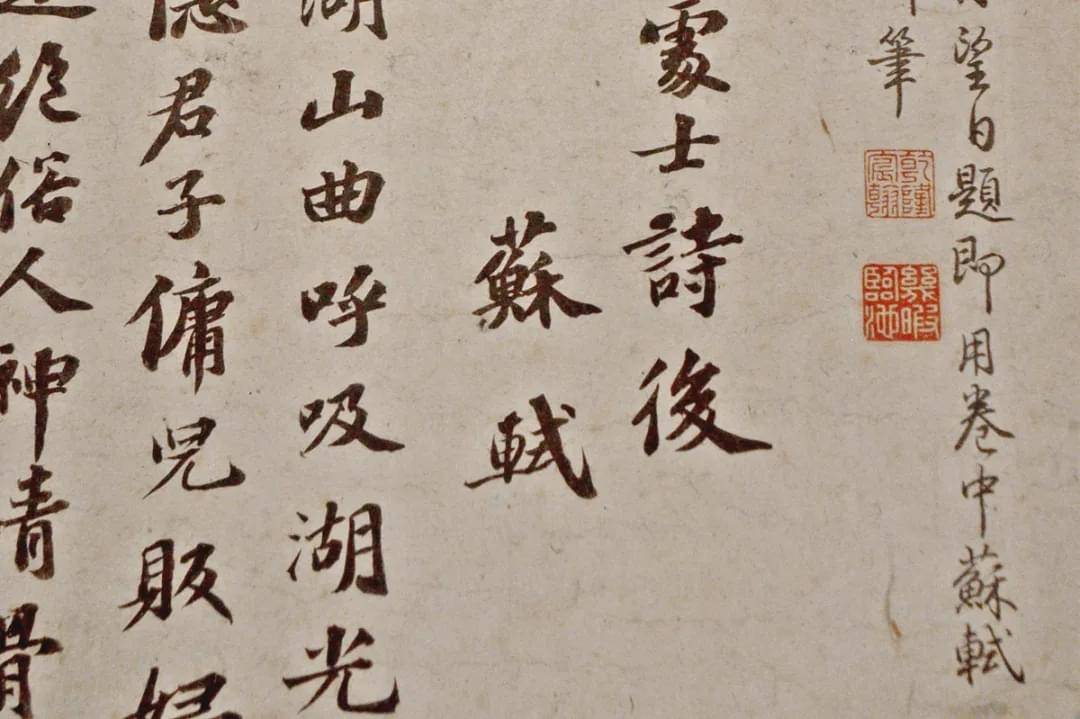 望日題即用卷中蘇軾
筆
乾隆宸翰
幾暇臨池
處士詩後
蘇軾
湖山曲呼吸湖光
隱君子傭兒販婦
絕俗人神清骨